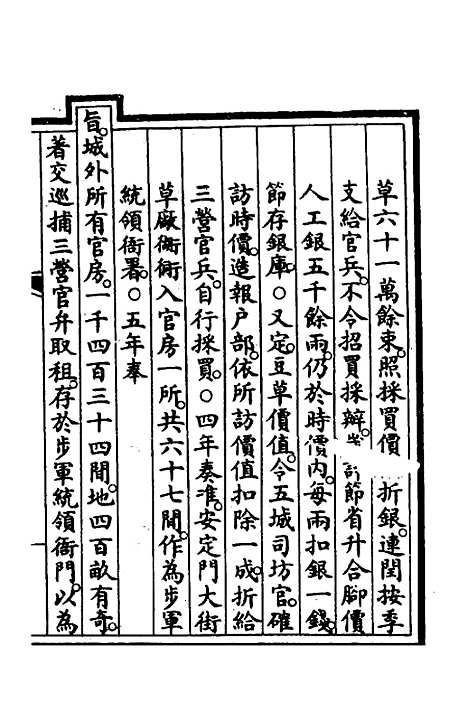 草六十一萬餘束。照採買價折銀。連閏按季
支給官兵。不令招買採辦。歲節省升合腳價
人工銀五千餘兩。仍於時價內。每兩扣銀一錢。
節存銀庫。○又定。豆草價值。令五城司坊官。確
訪時價。造報户部。依所訪價值扣除一成。折給
三營官兵。自行採買。○四年奏准。安定門大街
草厰衚衕入官房一所。共六十七閒。作為步軍
統領衙署。○五年奉
旨。城外所有官房。一千四百三十四閒。地四百畝有奇。
著交巡捕三營官弁取租。存於步軍統領衙門。以為